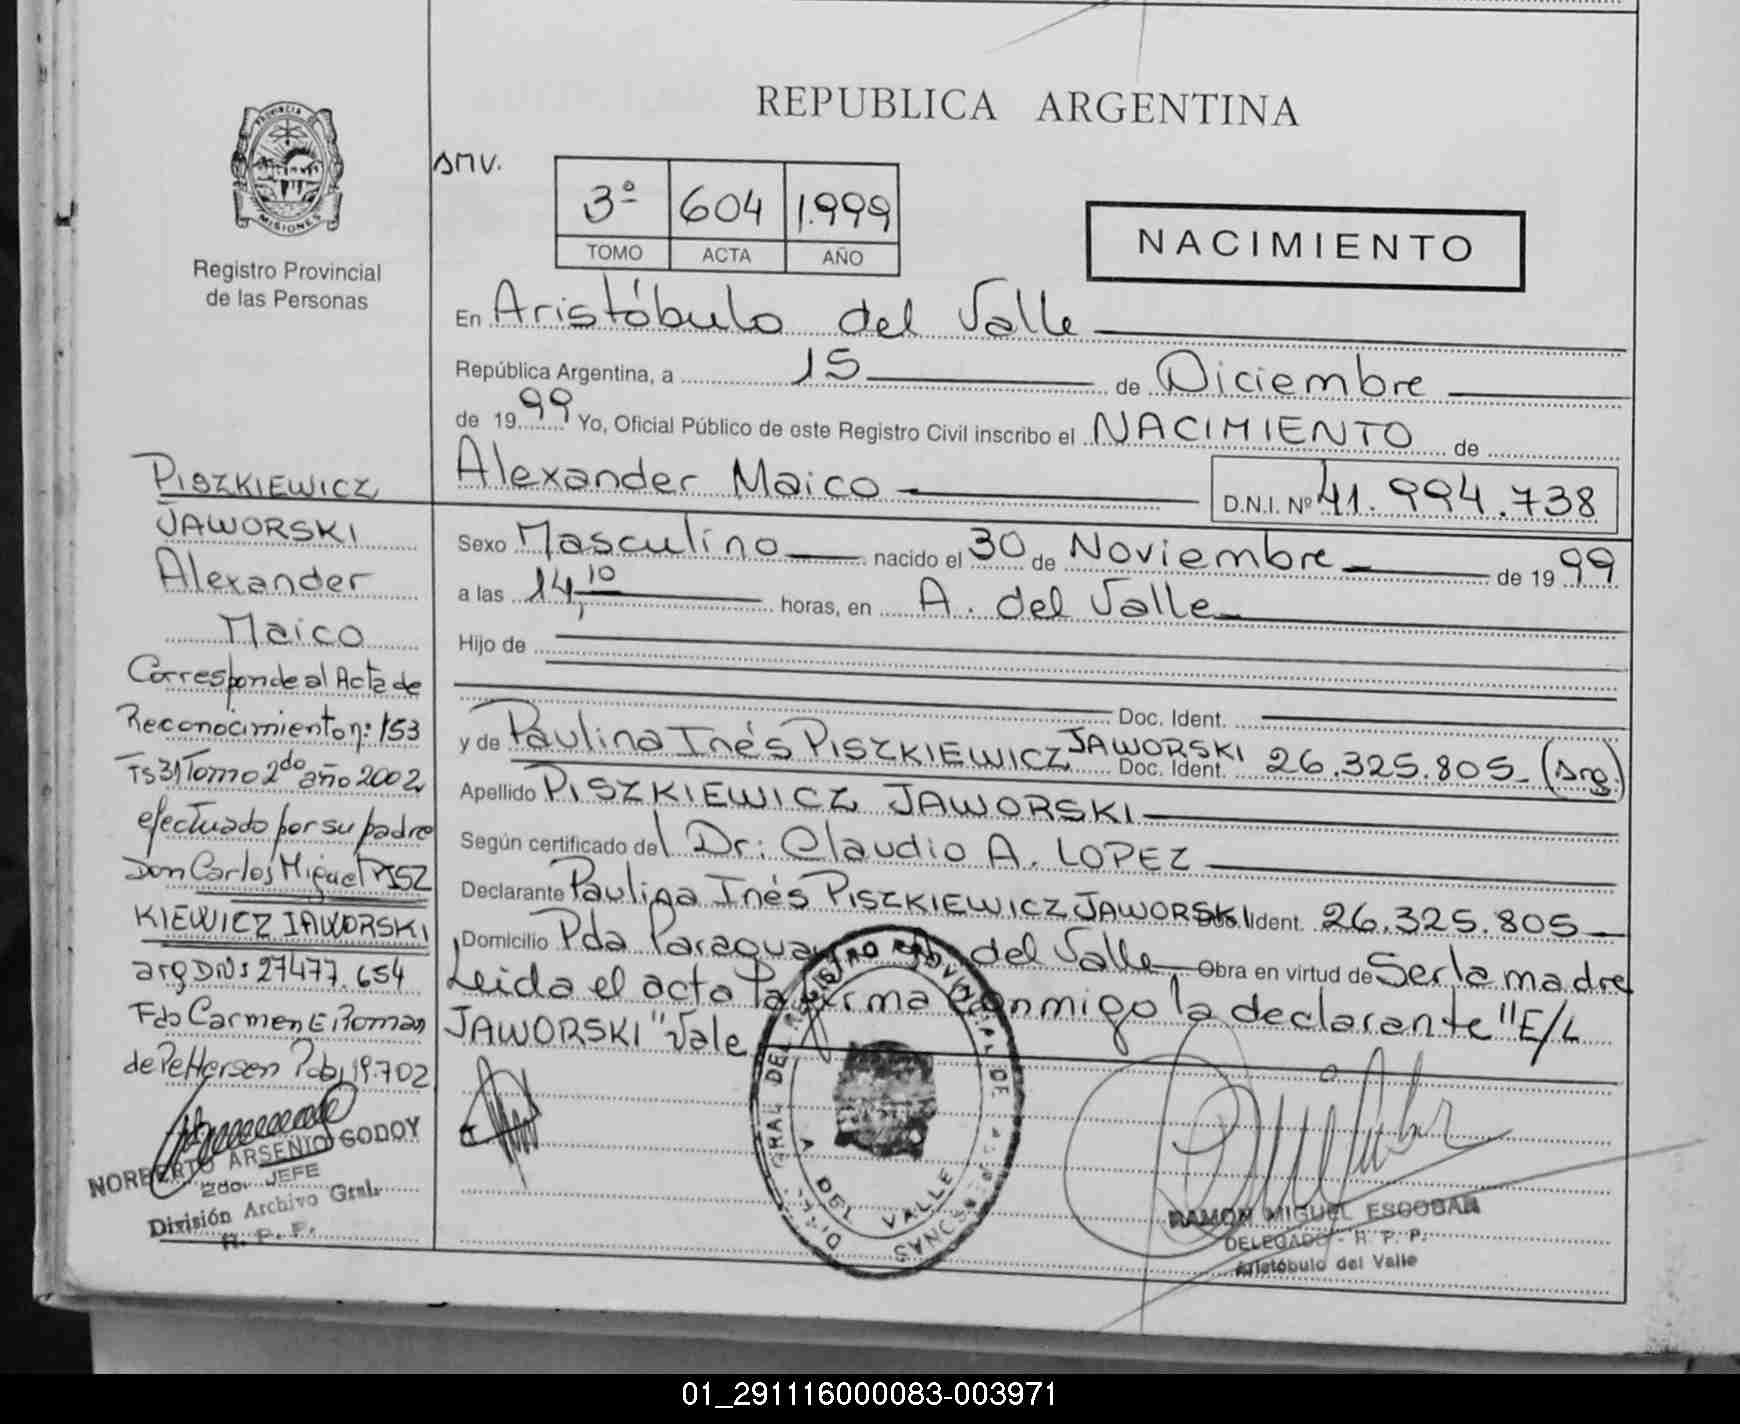 REPUBLICA ARGENTINA
PROVINCIA DE
MISIONES
Registro Provincial
de las Personas
SMV.
3º 604 1.999
TOMO ACTA AÑO
NACIMIENTO
En Aristóbulo del Valle
República Argentina, a 15 de Diciembre
de 1999 Yo, Oficial Público de este Registro Civil inscribo el NACIMIENTO de
Alexander Maico D.N.I. Nº 41.994.738
Sexo Masculino nacido el 30 de Noviembre de 1999
a las 14,10 horas, en A. del Valle
Hijo de
Doc. Ident.
y de Paulina Inés PISZKIEWICZ JAWORSKI Doc. Ident. 26.325.805 (Arg.)
Apellido PISZKIEWICZ JAWORSKI
Según certificado del Dr: Claudio A. LOPEZ
Declarante Paulina Inés PISZKIEWICZ JAWORSKI Doc. Ident. 26.325.805
Domicilio Pda Paraguay del Valle Obra en virtud de Ser la madre
Leida el acta la firma conmigo la declarante "E/L
JAWORSKI" Vale
PISZKIEWICZ
JAWORSKI
Alexander
Maico
Corresponde al Acta de
Reconocimiento nº: 153
Fs 31 Tomo 2do año 2002
efectuado por su padre
Don Carlos Miguel PISZ
KIEWICZ JAWORSKI
arg DNI 27477.654
Fdo Carmen E. Roman
de Pettersen Pdas 19.702
NORBERTO ARSENIO GODOY
2do. JEFE
División Archivo Gral.
R. P. P.
DIR. GRAL DEL REGISTRO PROVINCIAL DE PERSONAS
A DEL VALLE
RAMON MIGUEL ESCOBAR
DELEGADO - R. P. P.
Aristóbulo del Valle
01_291116000083-003971